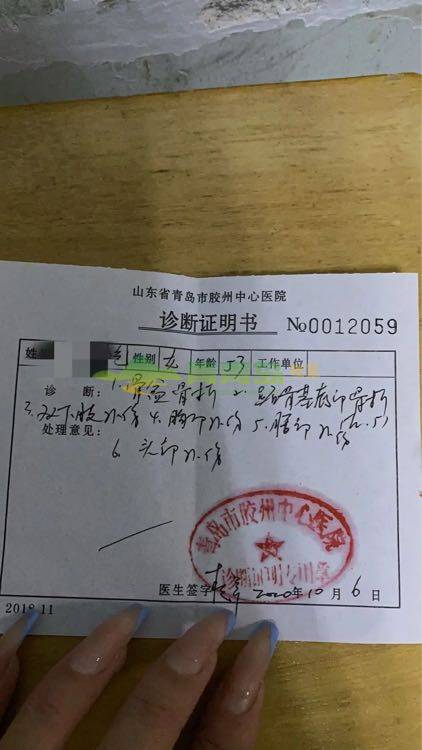 山东省青岛市胶州中心医院
诊断证明书 №0012059
姓 性别 年龄 53 工作单位
诊 断: 1. 骨盆骨折 2. 骨基底部骨折
3. 双下肢外伤 4. 胸部外伤 5. 腰部外伤
处理意见:
6. 头部外伤
青岛市胶州中心医院
诊断证明专用章
医生签字 2020年10月6日
2018.11